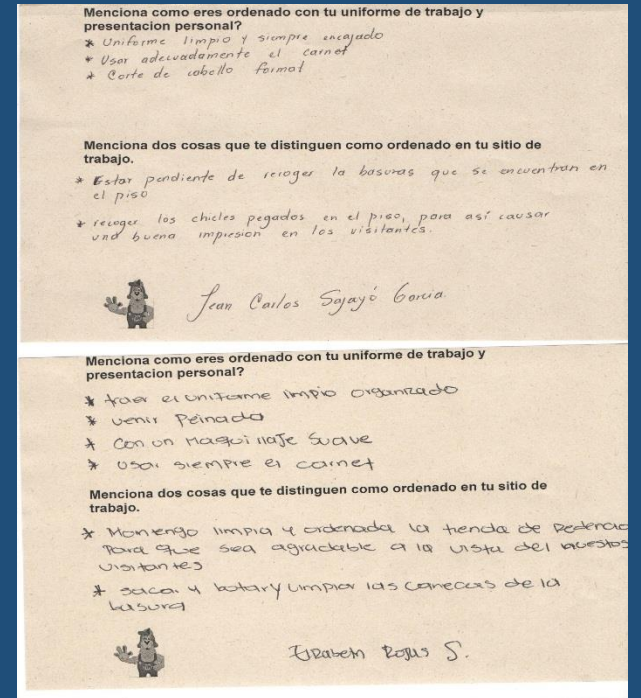 Menciona como eres ordenado con tu uniforme de trabajo y
presentacion personal?
* Uniforme limpio y siempre encajado
* Usar adecuadamente el carnet
* Corte de cabello formal
Menciona dos cosas que te distinguen como ordenado en tu sitio de
trabajo.
* Estar pendiente de recoger la basuras que se encuentran en
el piso
* recoger los chicles pegados en el piso, para así causar
una buena impresion en los visitantes.
Jean Carlos Sajayó Garcia
Menciona como eres ordenado con tu uniforme de trabajo y
presentacion personal?
* traer el uniforme limpio organizado
* venir Peinada
* Con un Maquillaje Suave
* Usar siempre el carnet
Menciona dos cosas que te distinguen como ordenado en tu sitio de
trabajo.
* Mantengo limpia y ordenada la tienda de
Para que sea agradable a la vista del
visitantes
* sacar y botar y limpiar las canecas de la
basura
Elizabeth Rojas S.